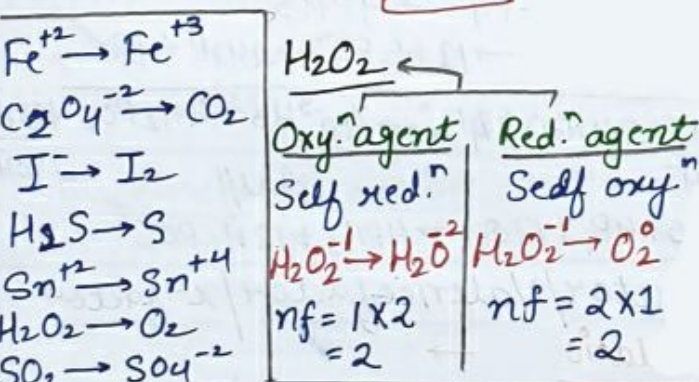 Fe⁺² → Fe⁺³
C₂O₄⁻² → CO₂
I⁻ → I₂
H₂S → S
Sn⁺² → Sn⁺⁴
H₂O₂ → O₂
SO₂ → SO₄⁻²
H₂O₂
Oxy.ⁿ agent
Self red.ⁿ
H₂O₂⁻¹ → H₂O⁻²
nf = 1×2
= 2
Red.ⁿ agent
Self oxyⁿ
H₂O₂⁻¹ → O₂⁰
nf = 2×1
= 2